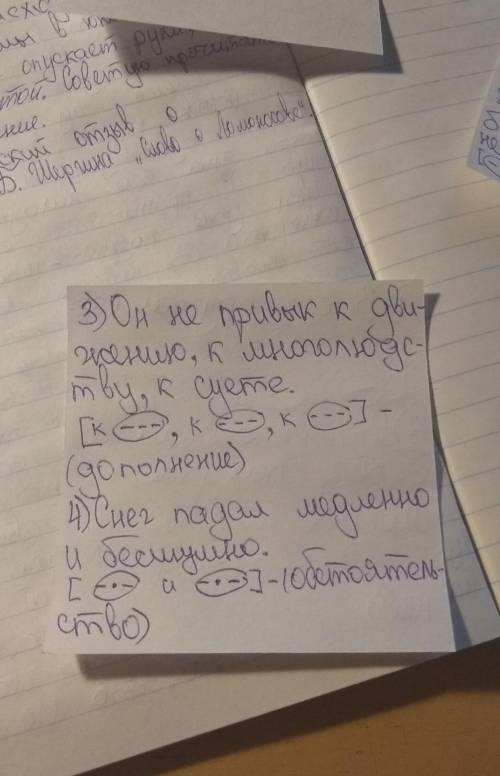 опускает руки,
Советую прочитать
отзыв о
Б. Шергина „Слово о Ломоносове".
3) Он не привык к дви-
жению, к многолюдс-
тву, к суете.
[к ---, к ---, к ---] -
(дополнение)
4) Снег падал медленно
и бесшумно.
[-·- и -·-] - (обстоятель-
ство)